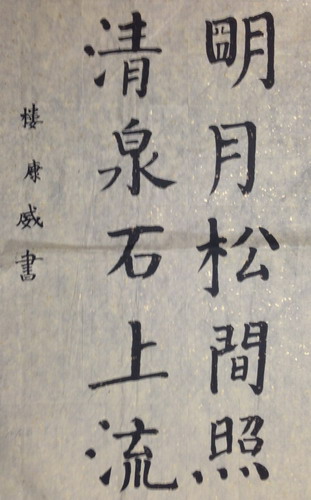 明月松間照
清泉石上流
楼康威書